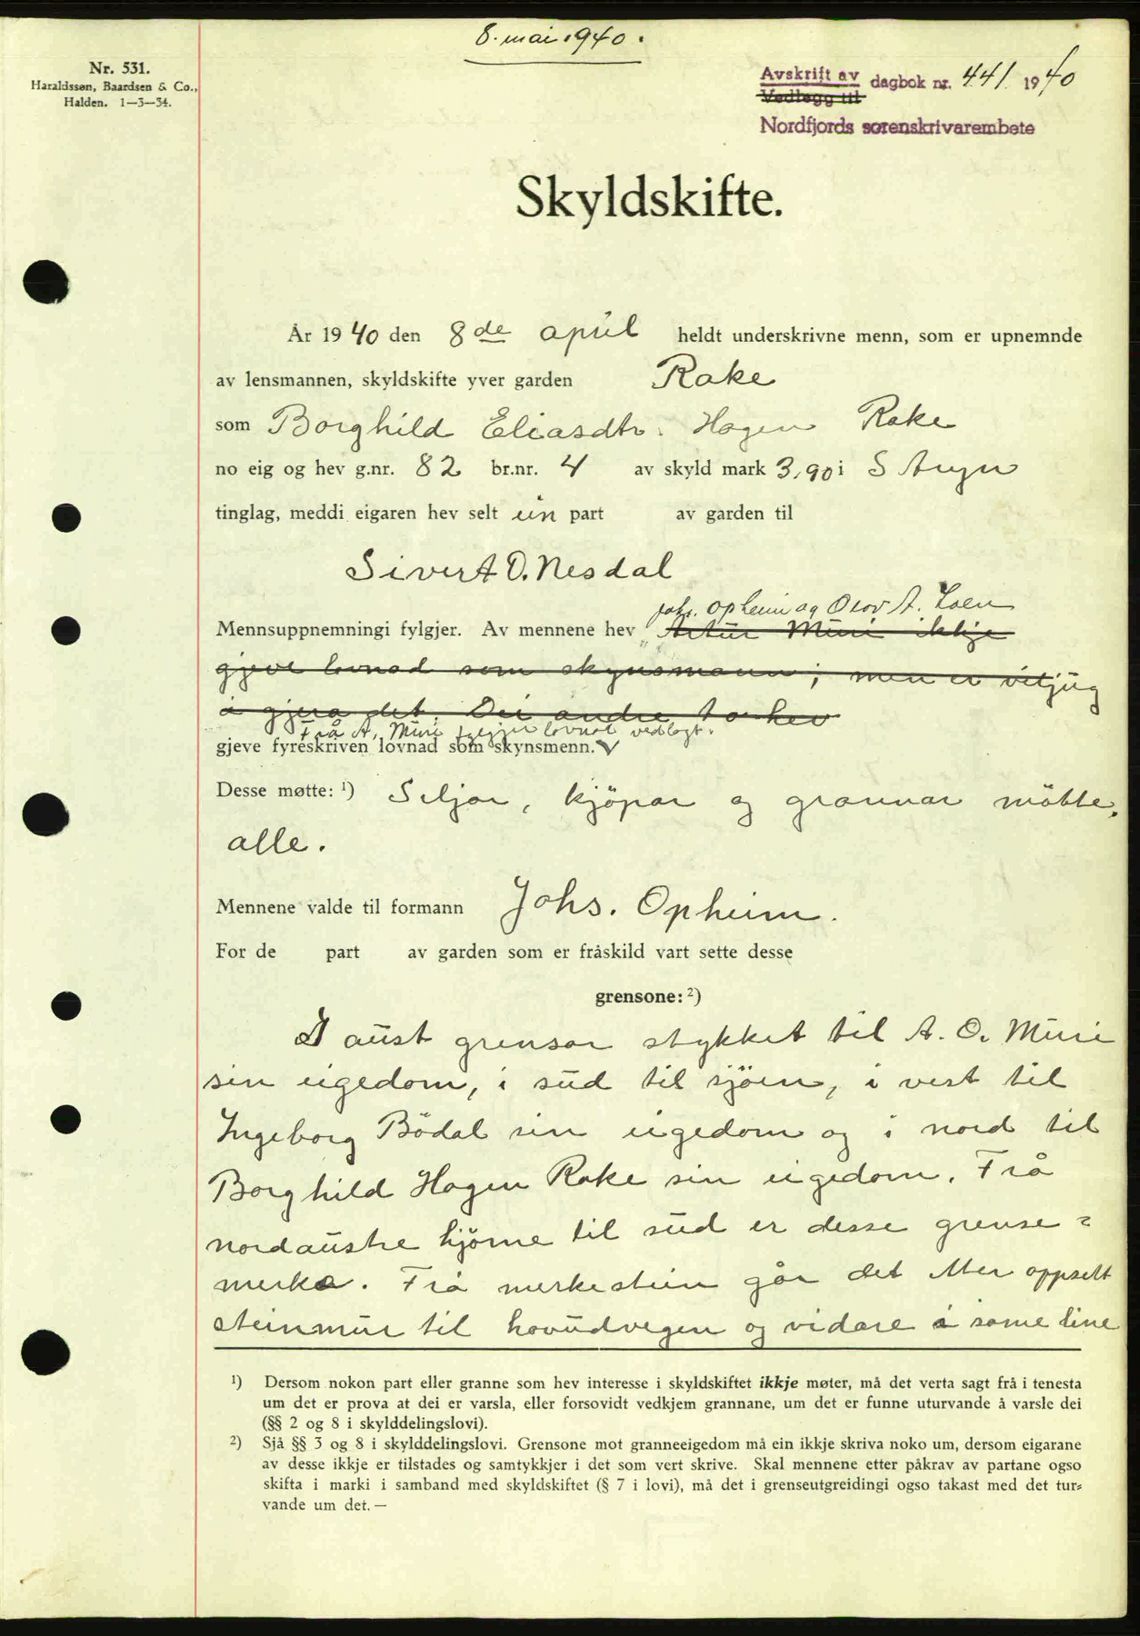 8. mai 1940.
Nr. 531.
Haraldssøn, Baardsen & Co.,
Halden. 1—3—34.
Avskrift av dagbok nr. 441 1940
Vedlegg til
Nordfjords sorenskrivarembete
Skyldskifte.
År 1940 den 8de april heldt underskrivne menn, som er upnemnde
av lensmannen, skyldskifte yver garden Rake
som Borghild Eliasdtr. Hagen Rake
no eig og hev g.nr. 82 br.nr. 4 av skyld mark 3,90 i Stryn
tinglag, meddi eigaren hev selt ein part av garden til
Sivert O. Nesdal
Johs. Opheim og Olov A. Loen
Mennsuppnemningi fylgjer. Av mennene hev Artur Muri ikkje
gjeve lovnad som skynsmann; men er viljug
å gjera det. Dei andre to hev
Frå A. Muri fylgjer lovnad vedlagt.
gjeve fyreskriven lovnad som skynsmenn.
Desse møtte: ¹) Seljar, kjöpar og grannar mötte,
alle.
Mennene valde til formann Johs. Opheim.
For de part av garden som er fråskild vart sette desse
grensone: ²)
I aust grensar stykket til A. O. Muri
sin eigedom, i sud til sjöen, i vest til
Ingeborg Bödal sin eigedom og i nord til
Borghild Hagen Rake sin eigedom. Frå
nordaustre hjörne til sud er desse grense=
merke. Frå merkestein går det etter oppsett
steinmur til hovudvegen og vidare i same line
¹) Dersom nokon part eller granne som hev interesse i skyldskiftet ikkje møter, må det verta sagt frå i tenesta
um det er prova at dei er varsla, eller forsovidt vedkjem grannane, um det er funne uturvande å varsle dei
(§§ 2 og 8 i skylddelingslovi).
²) Sjå §§ 3 og 8 i skylddelingslovi. Grensone mot granneeigedom må ein ikkje skriva noko um, dersom eigarane
av desse ikkje er tilstades og samtykkjer i det som vert skrive. Skal mennene etter påkrav av partane ogso
skifta i marki i samband med skyldskiftet (§ 7 i lovi), må det i grenseutgreidingi ogso takast med det tur=
vande um det. —